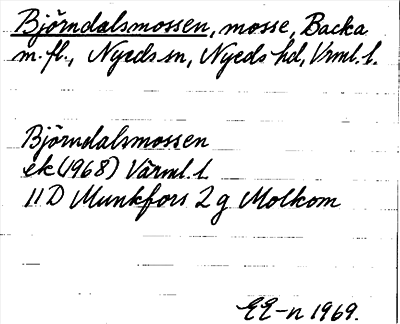 Björndalsmossen, mosse, Backa
m. fl., Nyeds sn, Nyeds hd, Vrml. l.
Björndalsmossen
ek (1968) Värml. l
11D Munkfors 2 g Molkom
EE-n 1969.